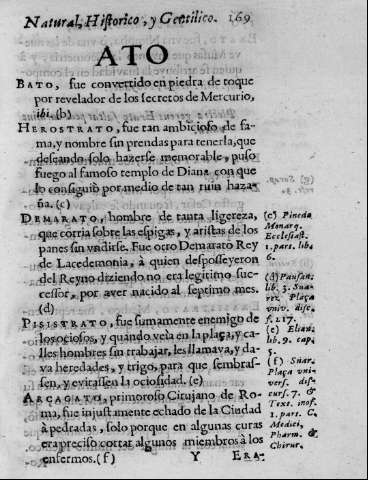 Natural, Historico, y Gentilico. 169
ATO
BATO, fue convertido en piedra de toque
por revelador de los secretos de Mercurio,
ibi. (b)
HEROSTRATO, fue tan ambicioso de fa-
ma, y nombre sin prendas para tenerla, que
deseando solo hazerse memorable, puso
fuego al famoso templo de Diana con que
lo consiguiò por medio de tan ruin haza-
ña. (c)
DEMARATO, hombre de tanta ligereza,
que corria sobre las espigas, y aristas de los
panes sin vndirse. Fue otro Demarato Rey
de Lacedemonia, à quien desposseyeron
del Reyno diziendo no era legitimo suc-
cessor, por aver nacido al septimo mes.
(d)
PISISTRATO, fue sumamente enemigo de
los ociosos, y quando veìa en la plaça, y ca-
lles hombres sin trabajar, les llamava, y da-
va heredades, y trigo, para que sembras-
sen, y evitassen la ociosidad. (e)
ARCAGATO, primoroso Cirujano de Ro-
ma, fue injustamente echado de la Ciudad
à pedradas, solo porque en algunas curas
era preciso cortar algunos miembros à los
enfermos. (f) Y ERA-
(c) Pineda
Monarq.
Ecclesiast.
1. part. lib.
6.
(d) Pausan.
lib. 3. Sua-
rez. Plaça
vniv. disc.
f. 217.
(e) Elian.
lib. 9. cap.
5.
(f) Suar.
Plaça vni-
vers. dis-
curs. 7. &
Text. inof.
1. part. C.
Medici,
Pharm. &
Chirur.